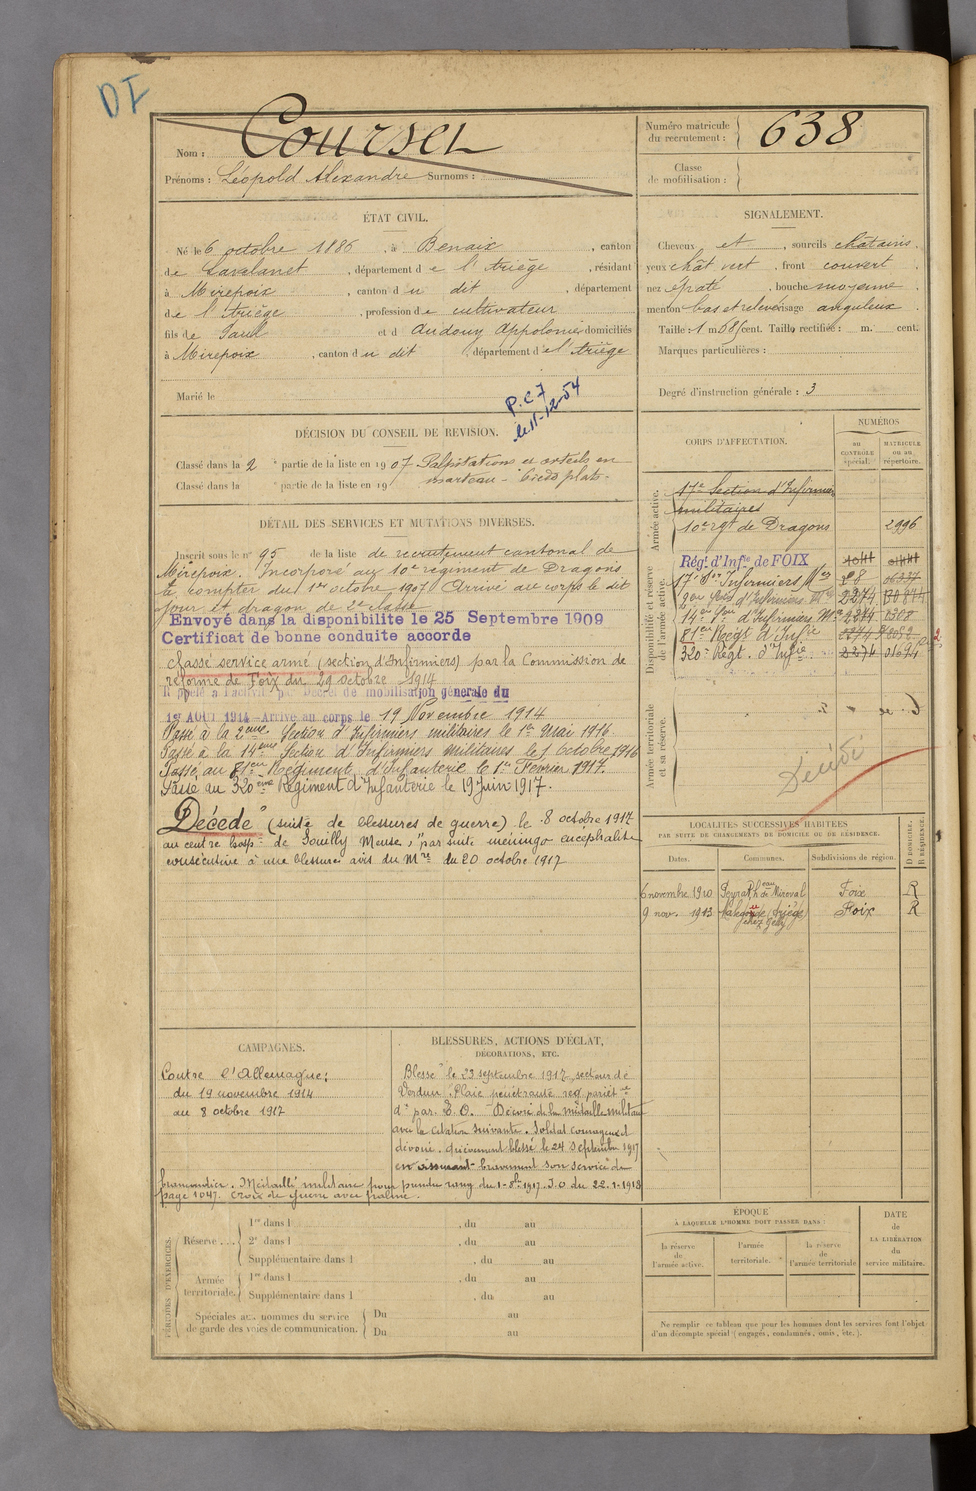 DI
Nom : Coursel
Prénoms : Léopold Alexandre Surnoms :
Numéro matricule du recrutement : 638
Classe de mobilisation :
ÉTAT CIVIL.
Né le 6 octobre 1886, à Benaix, canton
de Lavelanet, département de l'Ariège, résidant
à Mirepoix, canton du dit, département
de l'Ariège, profession de cultivateur
fils de Paul et d'Audouy Appolonie domiciliés
à Mirepoix, canton du dit, département de l'Ariège
Marié le
P.C 7
le 11-12-54
SIGNALEMENT.
Cheveux et, sourcils châtains.
yeux chât vert, front couvert.
nez épaté, bouche moyenne.
menton bas et relevé visage anguleux.
Taille : 1 m 68 cent. Taille rectifiée : m. cent.
Marques particulières :
Degré d'instruction générale : 3
DÉCISION DU CONSEIL DE REVISION.
Classé dans la 2e partie de la liste en 1907 Palpitations et orteils en
Classé dans la e partie de la liste en 19 marteau - pieds plats -
DÉTAIL DES SERVICES ET MUTATIONS DIVERSES.
Inscrit sous le n° 95 de la liste de recrutement cantonal de
Mirepoix. Incorporé au 10e régiment de Dragons
à compter du 1er octobre 1907 Arrivé au corps le dit
jour et dragon de 2e classe
Envoyé dans la disponibilité le 25 Septembre 1909
Certificat de bonne conduite accordé
Classé service armé (section d'Infirmiers) par la Commission de
réforme de Foix du 29 octobre 1914
Rappelé à l'activité par Décret de mobilisation générale du
1er AOUT 1914 - Arrivé au corps le 19 Novembre 1914
Passé à la 2ème Section d'Infirmiers militaires le 1er Mai 1916
Passé à la 14ème Section d'Infirmiers militaires le 1 octobre 1916
Passé au 81eme Régiment d'Infanterie le 1er Février 1917.
Passé au 320ème Régiment d'Infanterie le 19 Juin 1917.
Décédé (suite de blessures de guerre) le 8 octobre 1917
au centre hosp. de Souilly Meuse, "par suite méningo encéphalite
consécutive à une blessure avis du Mre du 20 octobre 1917
CORPS D'AFFECTATION.
NUMÉROS
AU CONTRÔLE spécial.
MATRICULE ou au répertoire.
Armée active.
17e Section d'Infirmiers
militaires
10e rgt de Dragons 2996
Disponibilité et réserve de l'armée active.
Régt d'Infie de FOIX
17e Son Infirmiers Mres
2274
14eme Son d'Infirmiers Mres 2274 1308
81eme Régt d'Infie
320e Régt d'Infie 2274
Armée territoriale et sa réserve.
Décédé
LOCALITÉS SUCCESSIVES HABITÉES
PAR SUITE DE CHANGEMENTS DE DOMICILE OU DE RÉSIDENCE.
D DOMICILE. R RÉSIDENCE.
Dates. Communes. Subdivisions de région.
6 novembre 1910 Foix R
9 nov. 1913 Foix R
CAMPAGNES.
Contre l'Allemagne :
du 19 novembre 1914
au 8 octobre 1917
BLESSURES, ACTIONS D'ÉCLAT,
DÉCORATIONS, ETC.
Blessé le 23 septembre 1917, secteur de
Verdun. Plaie pénétrante rég. pariét.le
d° par. E.O. Décoré de la médaille militaire
avec la citation suivante. Soldat courageux et
dévoué. Grièvement blessé le 24 septembre 1917
en assurant bravement son service de
brancardier. Médaille militaire pour prendre rang du 1-8bre 1917. J.O du 22.1.1918
page 1047. Croix de guerre avec palme.
PÉRIODES D'EXERCICES.
Réserve ... 1re dans l , du au
2e dans l , du au
Supplémentaire dans l , du au
Armée territoriale. 1re dans l , du au
Supplémentaire dans l , du au
Spéciales aux hommes du service
de garde des voies de communication. Du au
Du au
ÉPOQUE
À LAQUELLE L'HOMME DOIT PASSER DANS :
la réserve de l'armée active.
l'armée territoriale.
la réserve de l'armée territoriale
DATE de LA LIBÉRATION du service militaire.
Ne remplir ce tableau que pour les hommes dont les services font l'objet
d'un décompte spécial (engagés, condamnés, omis, etc.).